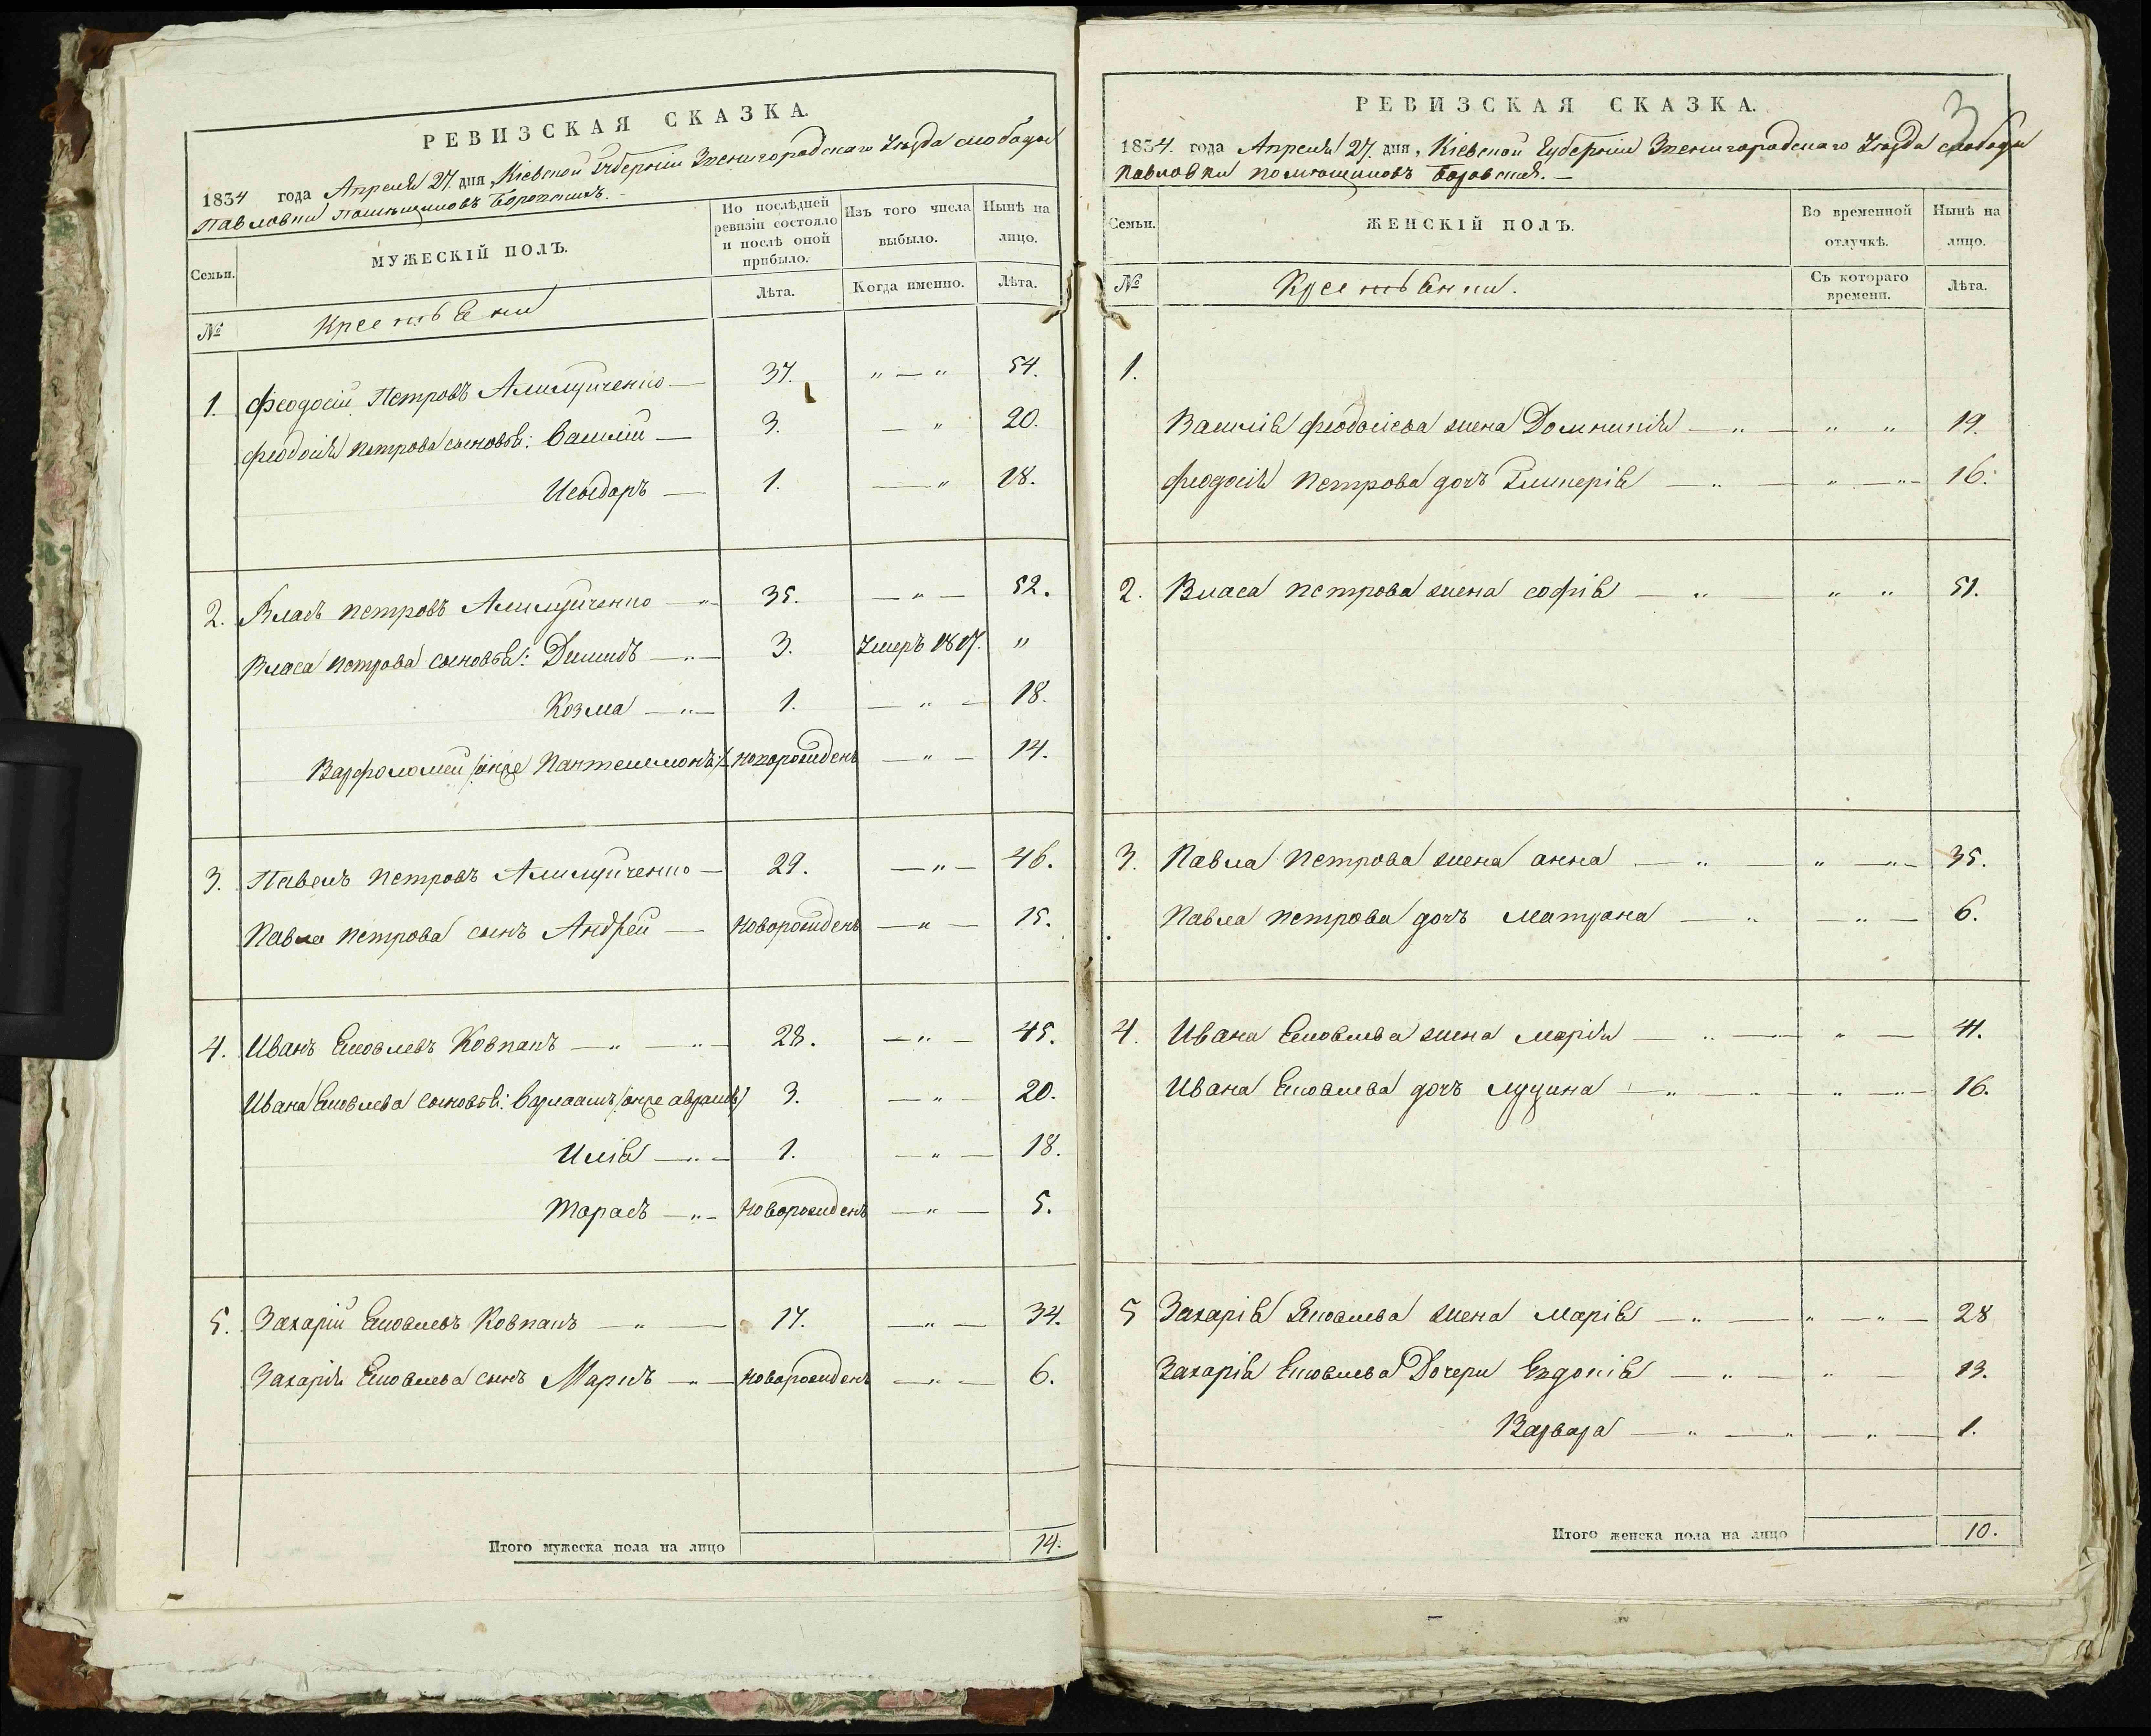 РЕВИЗСКАЯ СКАЗКА.
1834 года Апреля 27. дня, Кіевской Губерніи Звенигородскаго Уѣзда слободы
Павловки помѣщиковъ
Семьи.
МУЖЕСКІЙ ПОЛЪ.
По послѣдней ревизіи состояло и послѣ оной прибыло.
Изъ того числа выбыло.
Нынѣ на лицо.
№
Крестьяни
Лѣта.
Когда именно.
Лѣта.
1. Феодосій Петровъ — 37. „ — „ 54.
Феодосія Петрова сыновья: Василій — 3. — „ 20.
Исыдоръ — 1. — „ 18.
2. Власъ Петровъ — „ — 35. — „ — 52.
Власа Петрова сыновья: Демидъ — „ — 3. Умеръ 1817. „
Козма — „ — 1. — „ — 18.
Варфоломей /онже Пантелемонъ/ новорожденъ — „ — 14.
3. Павелъ Петровъ — 29. — „ — 46.
Павла Петрова сынъ Андрей — новорожденъ — „ — 15.
4. Иванъ Яковлевъ Ковпакъ — „ — „ — 28. — „ — 45.
Ивана Яковлева сыновья: Варлаамъ /онже Аврамъ/ 3. — „ — 20.
Илія — „ — 1. — „ — 18.
Тарасъ — „ — новорожденъ — „ — 5.
5. Захарій Яковлевъ Ковпакъ — „ — 17. — „ — 34.
Захарія Яковлева сынъ Маркъ — „ — новорожденъ — „ — 6.
Итого мужеска пола на лицо 14.
3
РЕВИЗСКАЯ СКАЗКА.
1834. года Апреля 27. дня, Кіевской Губерніи Звенигородскаго Уѣзда слободы
Павловки помѣщиковъ
Семьи.
ЖЕНСКІЙ ПОЛЪ.
Во временной отлучкѣ.
Нынѣ на лицо.
№
Крестьянки.
Съ котораго времени.
Лѣта.
1.
Василія Феодосіева жена Домникія — „ — „ „ 19.
Феодосія Петрова дочь Гликерія — „ — „ — „ — 16.
2. Власа Петрова жена Софія — „ — „ „ 51.
3. Павла Петрова жена Анна — „ — „ — „ — 35.
Павла Петрова дочь Матрона — „ — „ — 6.
4. Ивана Яковлева жена Марія — „ — „ — 41.
Ивана Яковлева дочь Лукина — „ — „ — „ — „ — 16.
5 Захарія Яковлева жена Марія — „ — „ — „ — 28
Захарія Яковлева Дочери Евдокія — „ — „ — 13.
Варвара — „ — „ — „ — 1.
Итого женска пола на лицо 10.